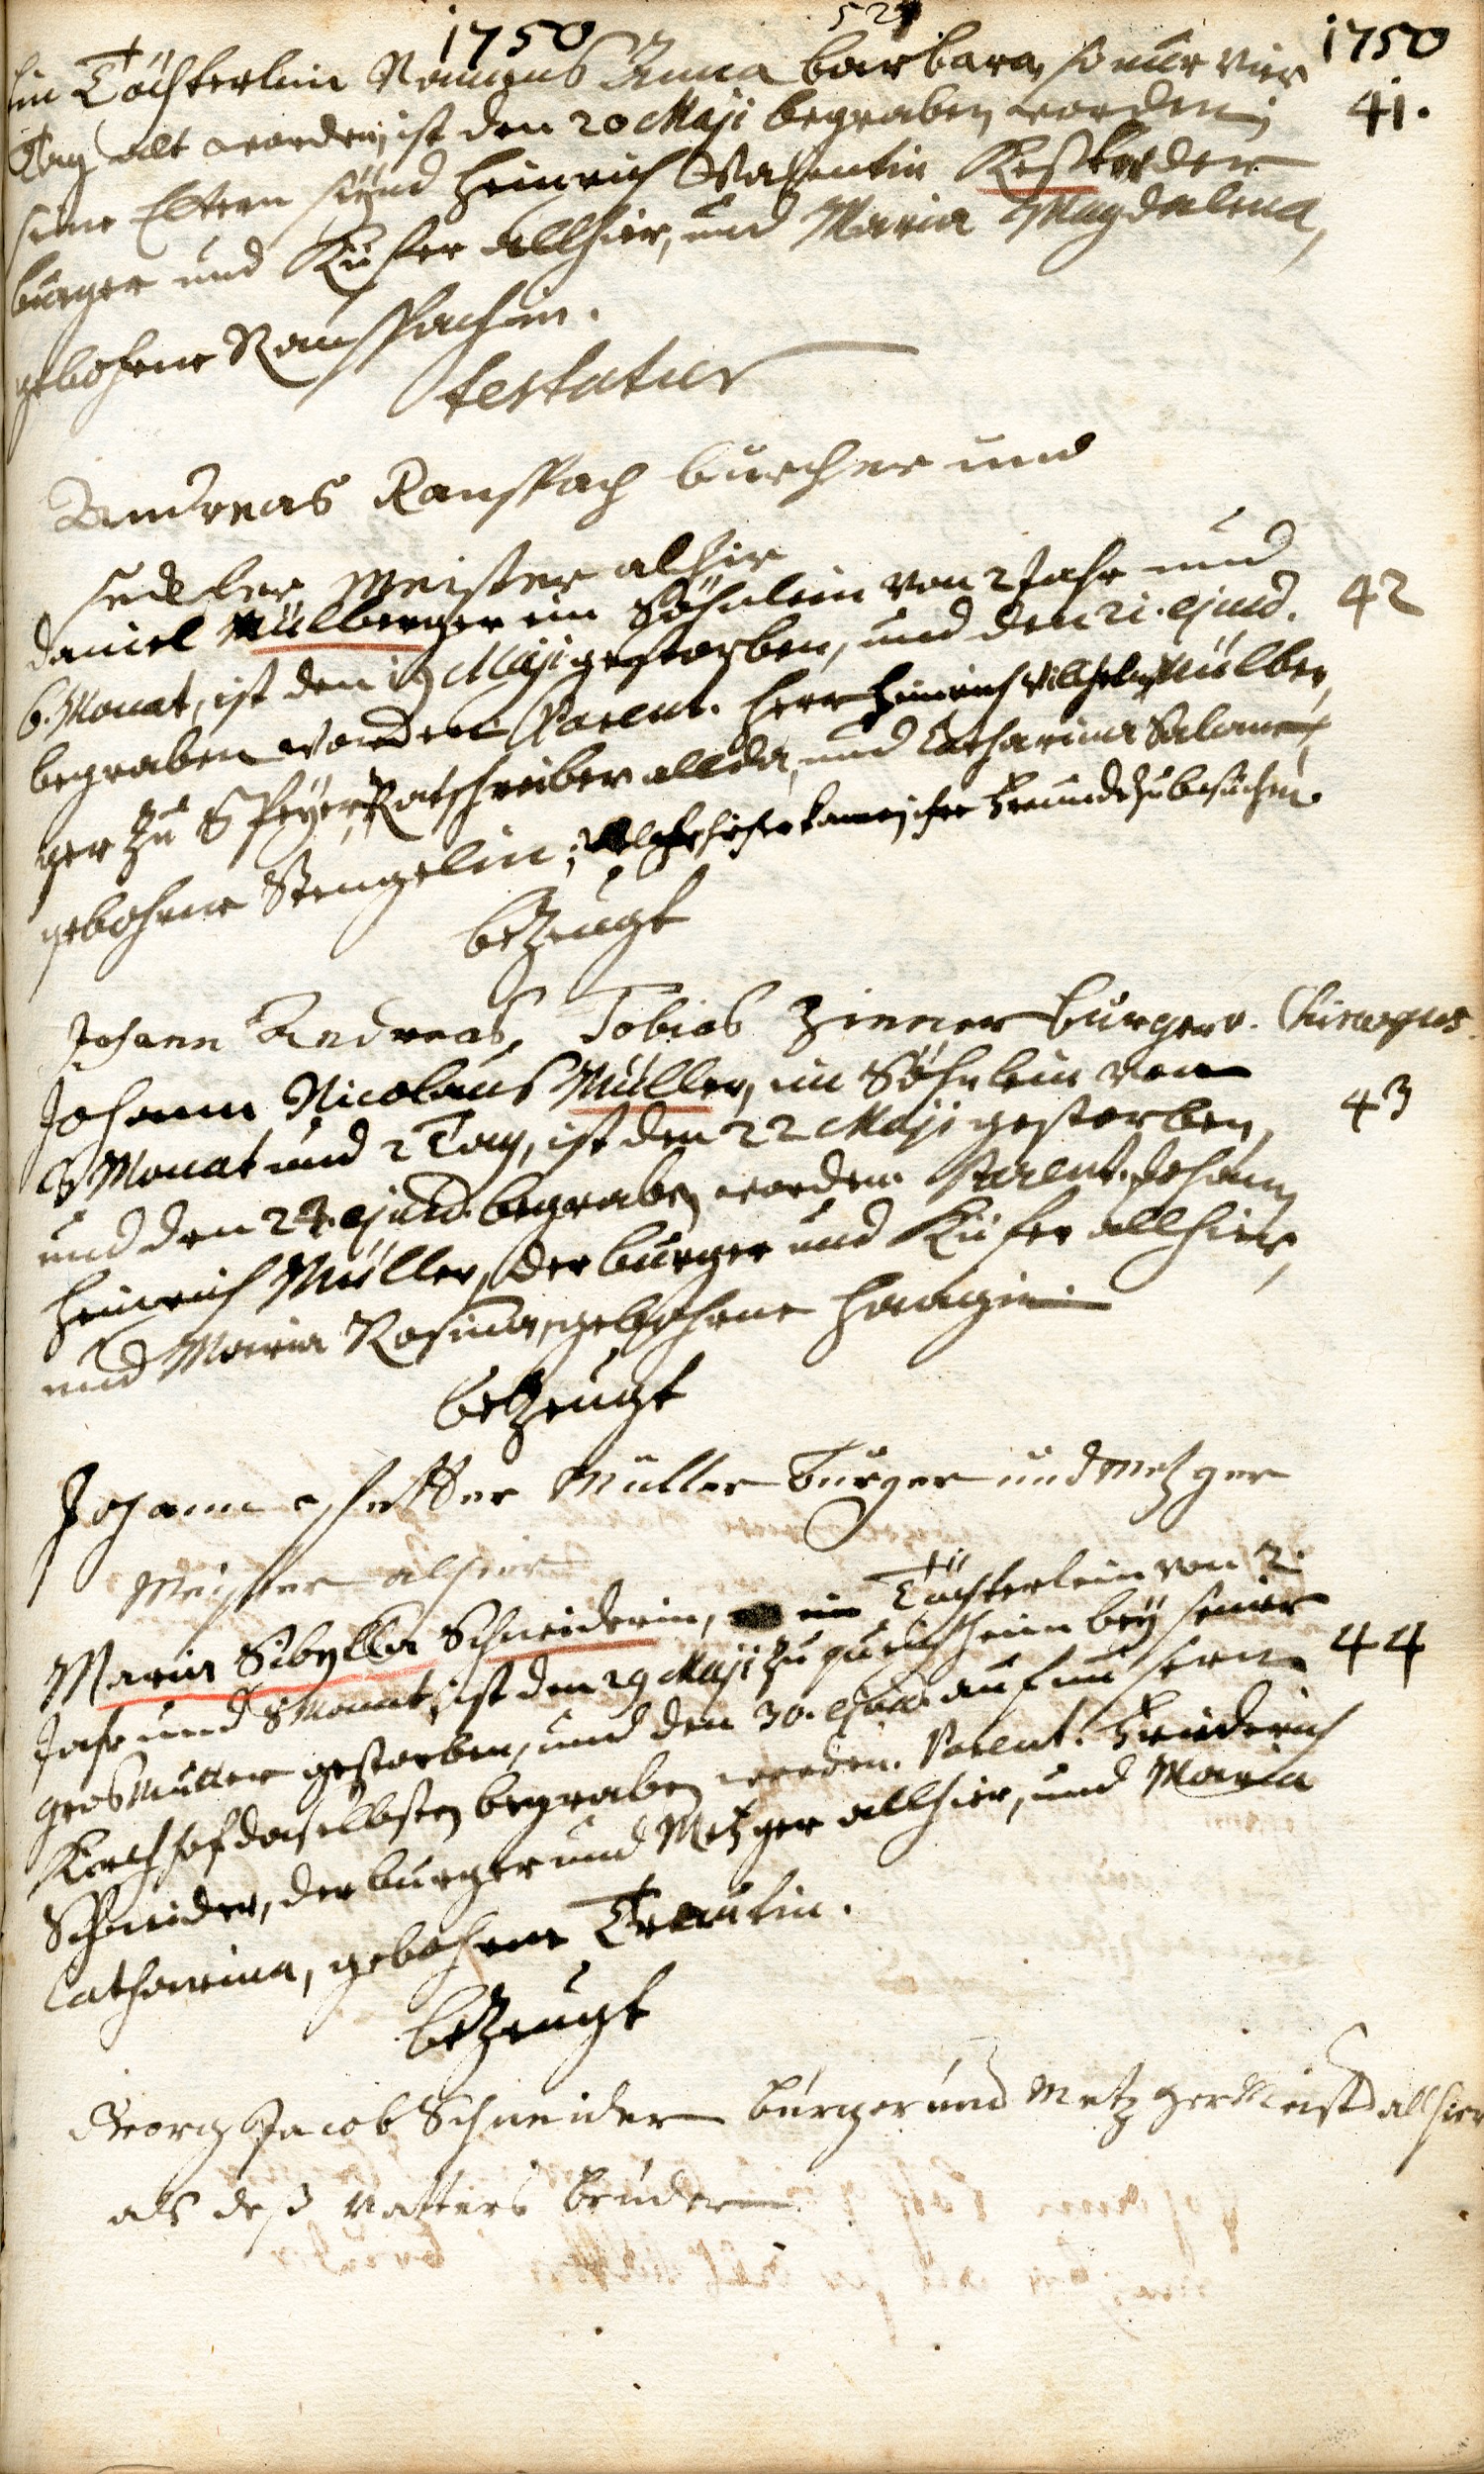 1750 521 1750
Ein Töchterlein Namens Anna barbara, so nur vier
Tag alt worden, ist den 20 Maji begraben worden; 41.
seine Eltern seynd Heinrich Valentin Kesler der
burger und Küfer allhier, und Maria Magdalena,
gebohrne Ranspachin.
testatur
Andreas Ranspach burcher und
seckler Meister alhir
Daniel Mülberger ein Söhnlein von 2 Jahr und 42
6. Monat, ist den 19 Maji gestorben, und den 21. ejusd.
begraben worden Parent. Herr Heinrich Wilhelm Mülber,
ger zu Speyer, Rathschreiber allda, und Catharina Salome,
gebohrne Stengelin; welche hieher kamen ihre Freunde zu besuchen.
bezeugt
Johann Andreas, Tobias Zinner burger v. Chirurgus.
Johann Nicolaus Müller, ein Söhnlein von 43
Monat und 2 Tag, ist den 22 Maji gestorben,
und den 23. ejusd. begraben worden. Parent. Johann
Heinrich Müller, der burger und Küfer allhier,
und Maria Rosina, gebohrne Haagin
bezeugt
Johann Müller burger und Metzger
Meister alhier
Maria Sibylla Schneiderin, ein Töchterlein von 2.
Jahr und 8 Monat, ist den 29 Maji zu queichheim bey seiner 44
grosMutter gestorben, und den 30. ejusd. auf unserm
Kirchhof daselbsten begraben worden. Parent. Friederich
Schneider, der burger und Metzger allhier, und Maria
Catharina, gebohrne Trautin.
bezeugt
Georg Jacob Schneider burger und Metzger Meister allhier
als deß Vatters bruder